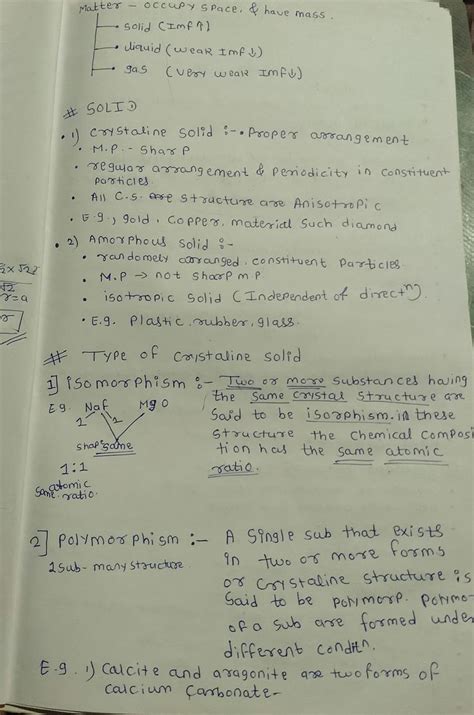 Matter - occupy space, & have mass.
→ solid (Imf↑)
→ liquid (weak Imf↓)
→ gas (very weak Imf↓)
# SOLID
• 1) Crystaline solid :- • Proper arrangement
• M.P. - Sharp
• regular arrangement & periodicity in constituent
particles
• All C.S. are structure are Anisotropic
• E.g., gold, copper, material such diamond
• 2) Amorphous solid :-
• randomely arranged constituent particles
• M.P → not sharp m p.
• isotropic solid (Independent of directn).
• E.g. Plastic, rubber, glass.
# Type of crystaline solid
1] isomorphism :- Two or more substances having
the same cristal structure are
Eg. Naf MgO
said to be isorphism. in these
1 2
structure the chemical composi
shap same
tion has the same atomic
1:1
ratio.
atomic
same ratio.
2] Polymorphism :- A single sub that exists
1 sub - many structure
in two or more forms
or crystaline structure is
said to be polymorp. Polymo-
of a sub are formed under
different conditn.
E.g. 1) Calcite and aragonite are two forms of
calcium carbonate-